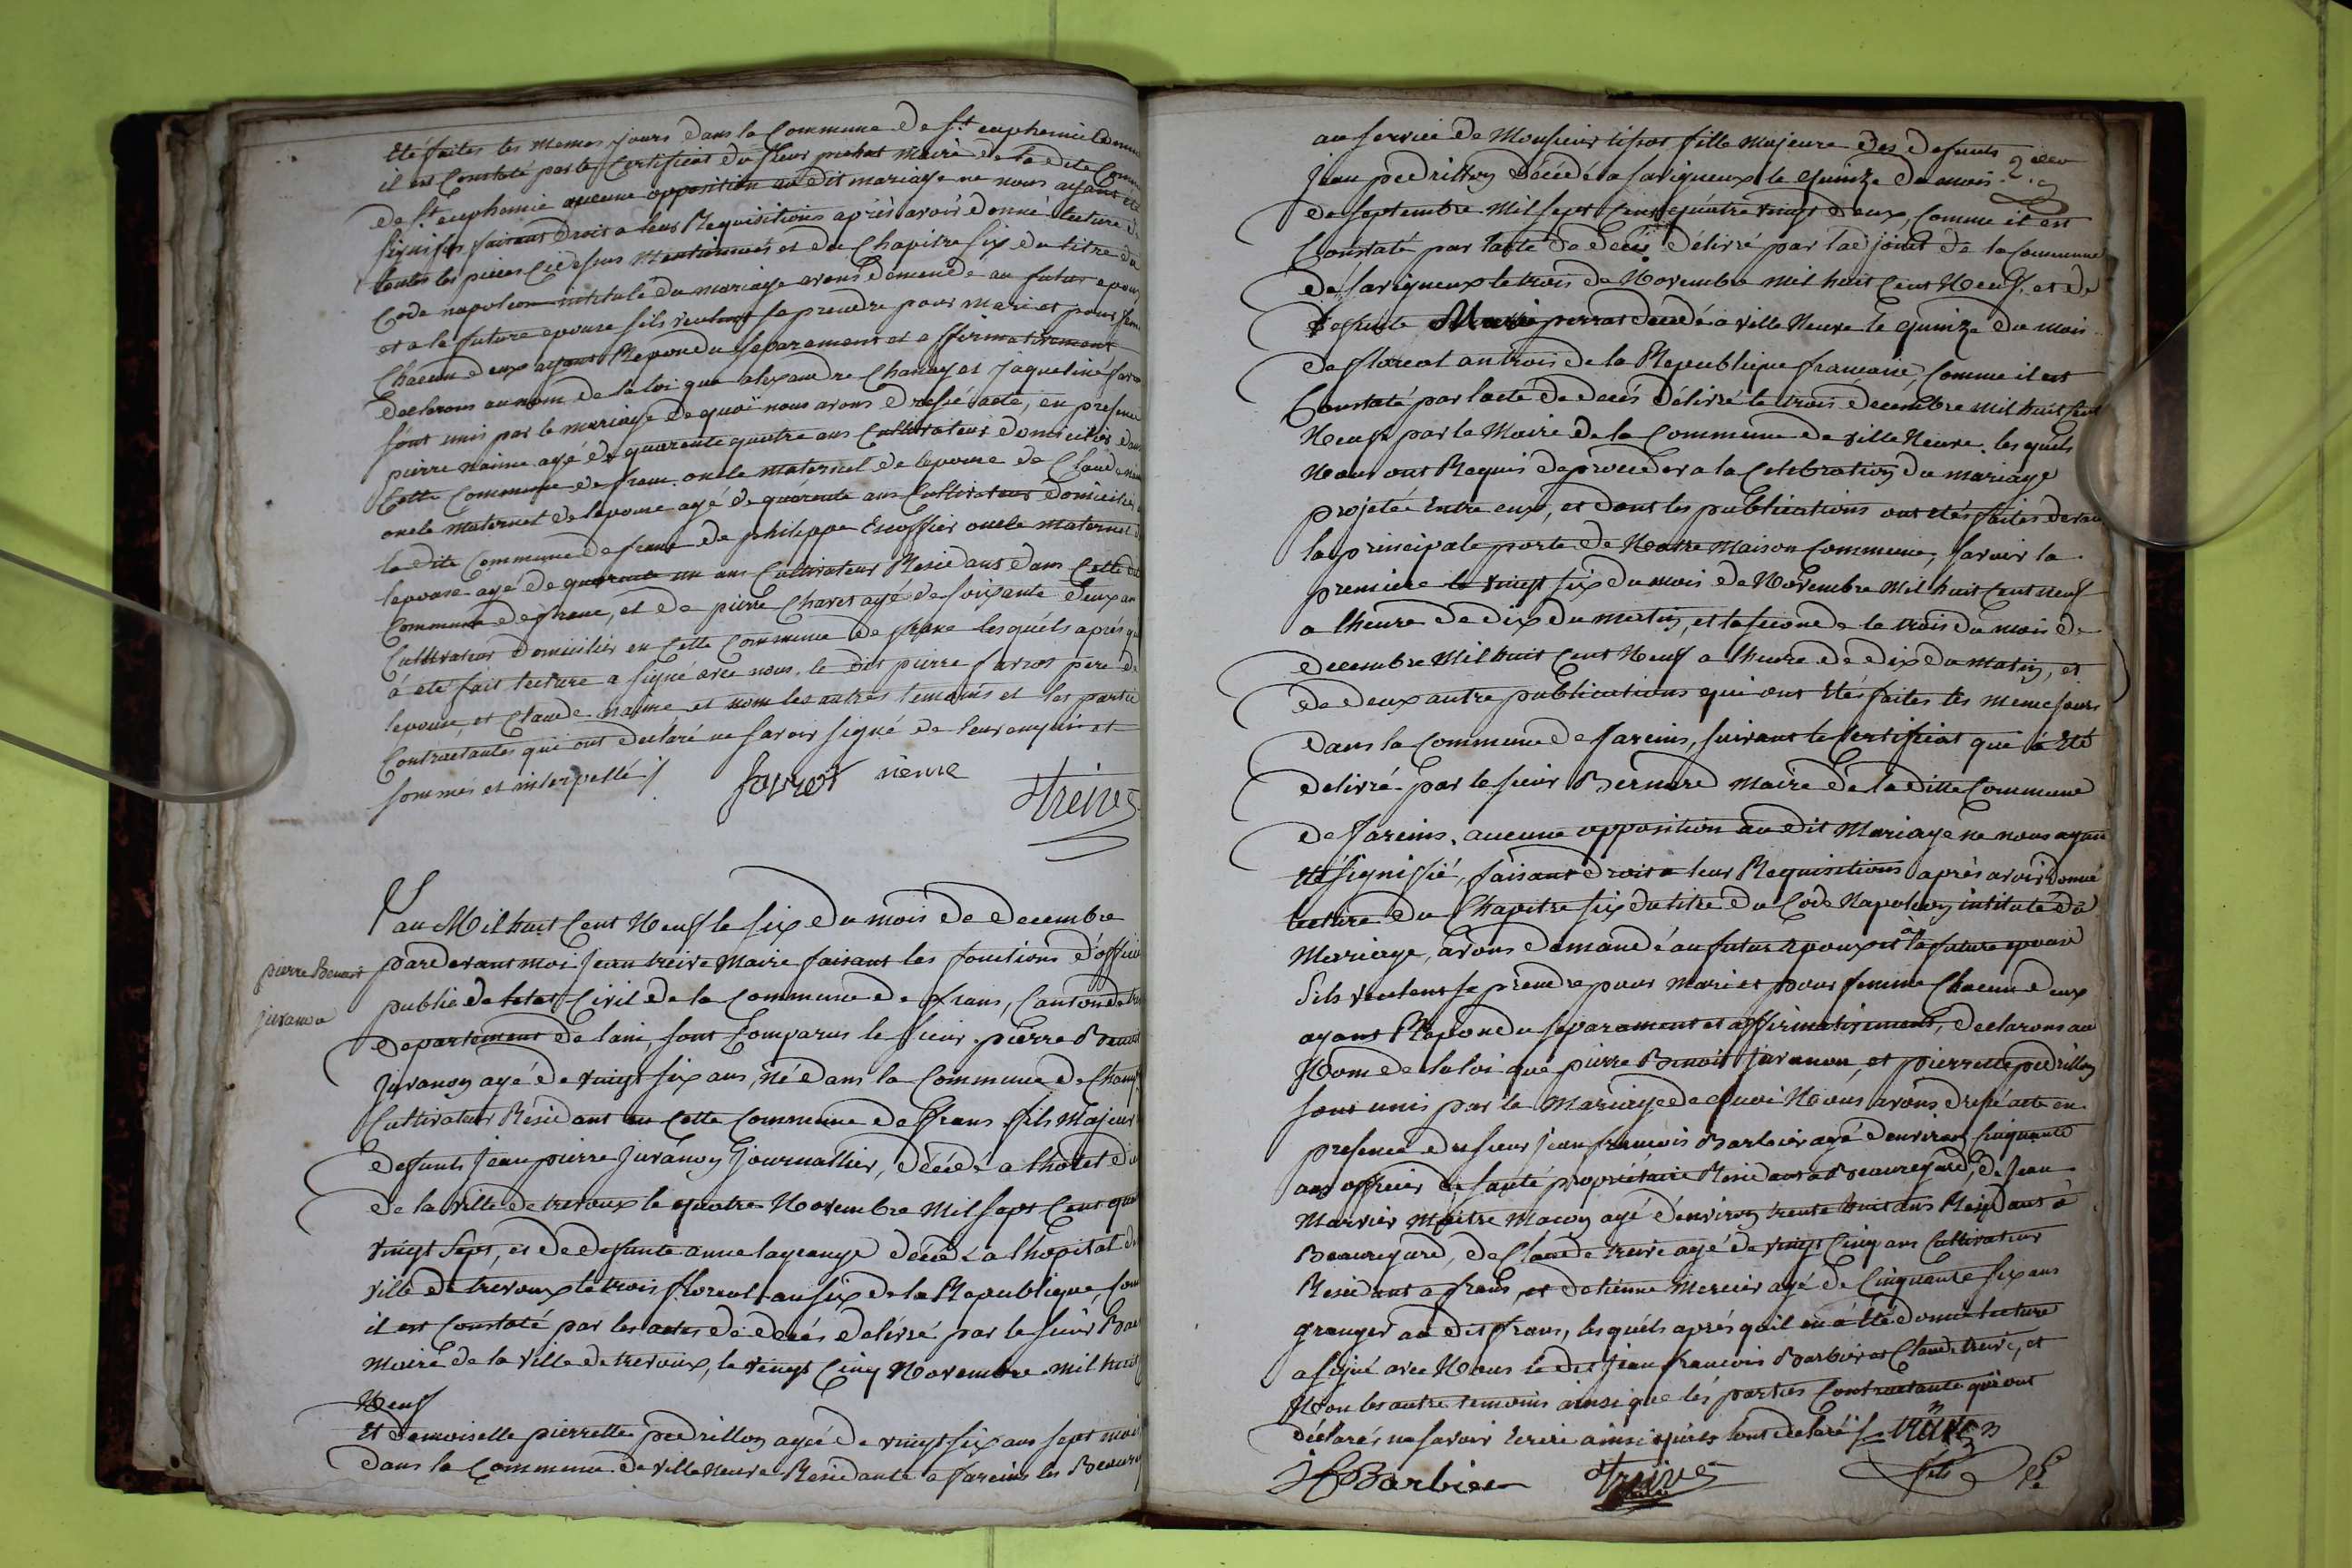 Eté faites les memes jours dans la Commune de St euphemie Comme
il est Constaté par le Certificat du sieur prebat maire de la dite Comm
de St euphemie aucune opposition au dit mariage ne nous ayant été
signifés faisant Droit a leur Requisitions après avoir donné lecture de
toutes les pieces Cidessus Mentionnés et du Chapitre six du titre du
Code napoleon intitulé du mariage avons demendé au futur epoux
et a la future epouse sils veulent se prendre pour mari et pour fem
Chacun deux ayant Repondu separement et affirmativement
declarons au nom de la loi que alexandre Chanay et jaqueline favro
sont unis par le mariage de quoi nous avons dressé acte, en presence
pierre naime agé de quarente quatre ans Cultivateur domicilié dans
Cette Commune de frans oncle maternel de lepouse de Claude naim
oncle maternel de lepouse agé de quarente ans Cultivateur domicilié
la dite Commune de frans de philippe Escoffier oncle maternel d
lepouse agé de quarente un ans Cultivateur Residant dans Cette dit
Commune de frans, et de pierre Charet agé de soixante deux an
Cultivateur domicilié en Cette Commune de frans lesquels aprés qu
á eté fait lecture a signé avec nous le dit pierre favrot pere de
lepouse, et Claude naime et non les autres temoins et les partie
Contractantes qui ont declaré ne savoir signé de leur enquis et
sommés et interpellé /.
favrot neme
Treive
pierre Benoit
juvanon
Lan Mil huit Cent Neuf le six du mois de decembre
pardevant moi Jean treive Maire faisant les fonctions d'officie
public de letat Civil de la Commune de frans, Canton de tre
departement de lain, sont Comparus le sieur pierre Benoit
Juvanon agé de vingt six ans, né dans la Commune de Chan
Cultivateur Résidant en Cette Commune de frans fils Majeur
defunts Jean pierre Juvanon Journallier, décédé a lhotel di
de la ville de trevoux le quatre Novembre Mil sept Cent qua
vingt sept, et de defunte anne lagrange décédé a lhopital de
ville de trevoux le trois floreal an six de la Republique, Com
il est Constaté par les actes de decés delivré par le sieur
Maire de la ville de trevoux, le vingt Cinq Novembre mil huit
Neuf
Et demoiselle pierrette pedrillon agée de vingt six ans sept mois
dans la Commune de ville Neuve Residante a fareins les Beaure
au service de Monsieur fille majeure des defunts
Jean pedrillon décédé a Savigneux le quinze du mois
de septembre Mil sept Cent quatre vingt deux, Comme il est
Constaté par lacte de decés délivré par ladjoint de la Commune
de Savigneux le trois de Novembre mil huit Cent Neuf, et de
defunte Marie perrat decedé a ville Neuve le quinze du mois
de floreal an trois de la Republique francaise, Comme il est
Constaté par lacte de decés délivré le trois decembre mil huit Cent
Neuf par le Maire de la Commune de ville Neuve. lesquels
Nous ont Requis de proceder a la Celebration du mariage
projetée Entre eux, et dont les publications ont étés faites devan
la principale porte de Notre Maison Commune, savoir la
premiere le vingt six du mois de Novembre Mil huit Cent neuf
a lheure de dix du matin, et la seconde le trois du mois de
decembre Mil huit Cent Neuf a lheure de dix du matin, et
de deux autre publications qui ont étés faites les meme jours
dans la Commune de fareins, suivant le Certificat qui á Eté
delivré par le sieur Bernard Maire de la ditte Commune
de fareins. aucune opposition au dit Mariage ne nous ayan
été signifié, faisant droit a leur Requisitions après avoir donné
lecture du Chapitre six du titre du Code Napoleon intitulé du
Mariage, avons demandé au futur Epoux et à la future epouse
Sils veulent se prendre pour mari et pour femme Chacun deux
ayant Repondu separament et affirmativement, declarons au
Nom de la loi que pierre Benoit Juvanon, et pierrette pedrillon
sont unis par le Mariage de quoi Nous avons dressé acte en
presence du sieur Jean francois Barbier agé d'environ Cinquante
ans officier de santé propriétaire Residant a Beauregard, de Jean
Marvier Maitre Macon agé d'environ trente huit ans Residant à
Beauregard, de Claude treive agé de vingt Cinq ans Cultivateur
Residant a frans, et detienne Mercier agé de Cinquante six ans
granger au dit frans, lesquéls aprés quil en á Eté donné lecture
a signé avec Nous le dit Jean francois Barbier et Claude treive, et
Non les autre temoins ainsi que les parties Contractante qui ont
déclarés ne savoir Ecrire ainsi quils lont declaré /. treive
JF Barbier Treive fils